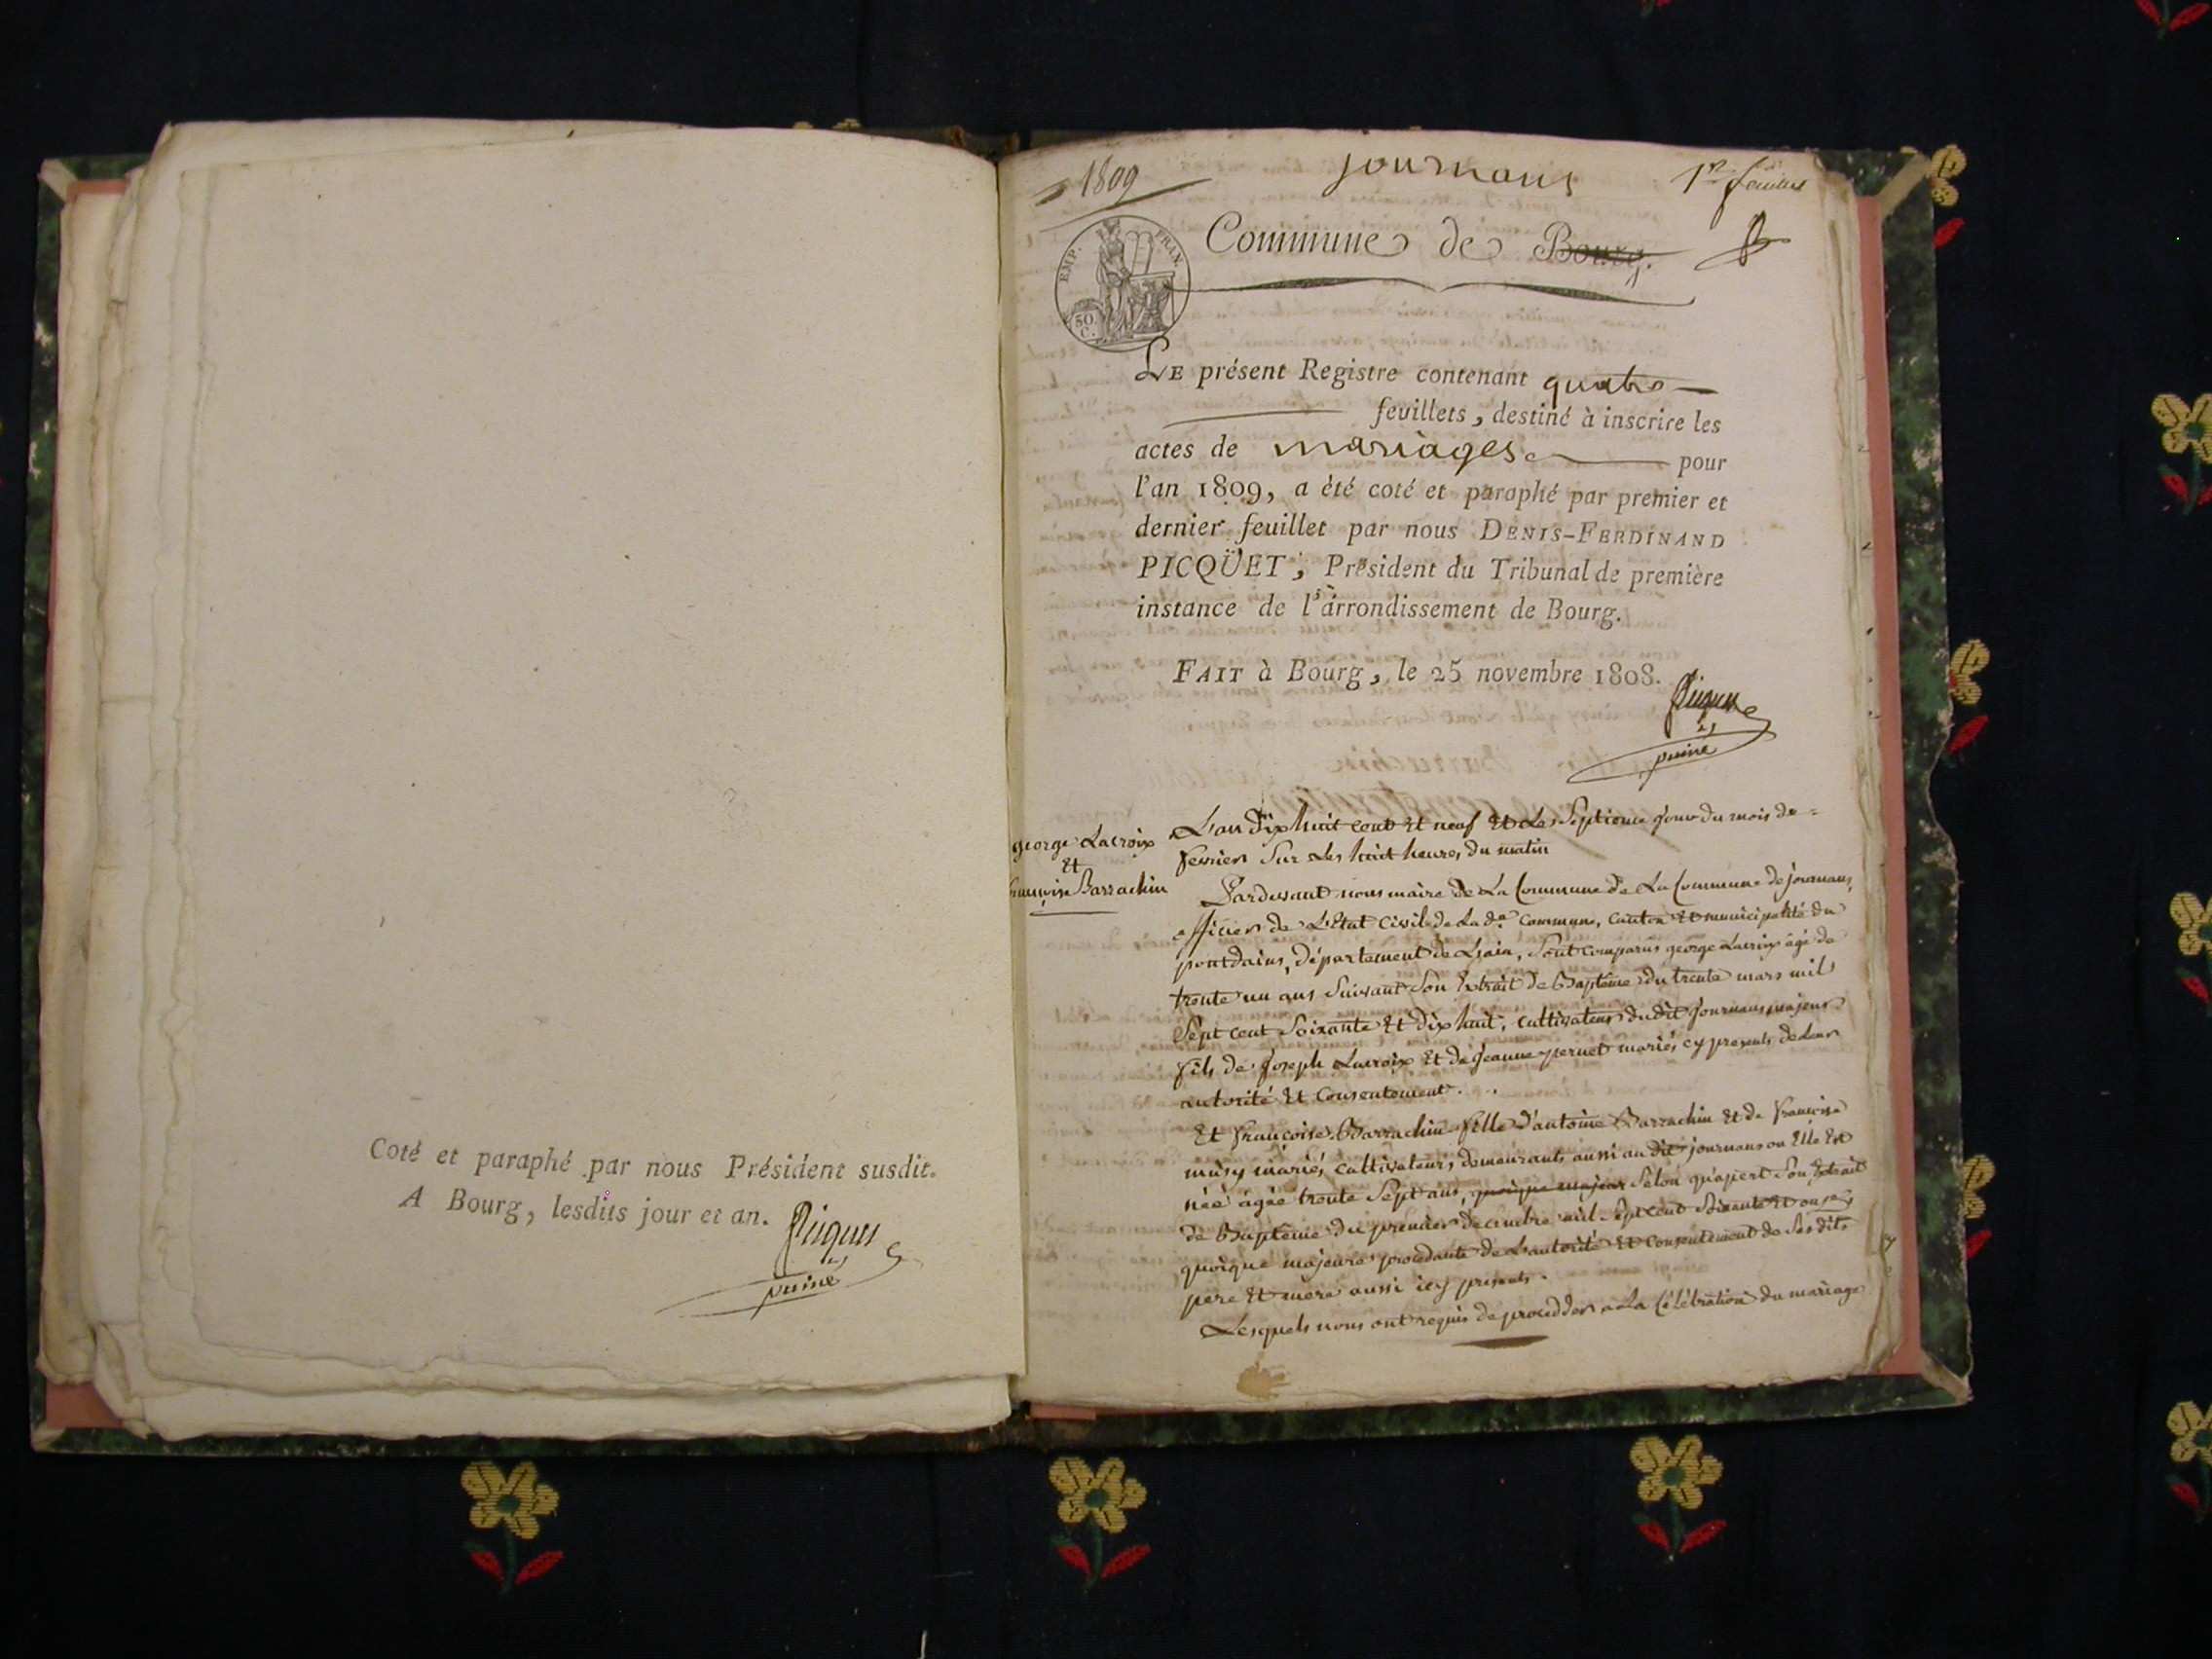 Coté et paraphé par nous Président susdit.
A Bourg, lesdits jour et an.
Picquet
puiné
1809
journans
1er feuillet
Commune de Bourg.
EMP. FRAN.
50
C.
LE présent Registre contenant quatre
feuillets, destiné à inscrire les
actes de mariages pour
l'an 1809, a été coté et paraphé par premier et
dernier feuillet par nous DENIS-FERDINAND
PICQÜET, Président du Tribunal de première
instance de l'arrondissement de Bourg.
FAIT à Bourg, le 25 novembre 1808.
Picquet
puiné
george Lacroix
Et
françoise Barrachin
L'an dix huit cent Et neuf Et Le Septieme jour du mois de =
fevrier Sur Les huit heures du matin
Pardevant nous maire de La Commune de La Commune de journans,
officier de L'Etat Civil de Lade. Commune, Canton Et municipalité du
pontdains, département de L'ain, Sont comparus george Lacroix âgé de
trente un ans Suivant Son Extrait de Baptême du trente mars mil
Sept cent Soixante Et dix huit, cultivateur dudit journans, majeur
fils de joseph Lacroix Et de jeanne pernet mariés cy presents de Leur
autorité Et Consentement.
Et françoise Barrachin fille d'antoine Barrachin Et de françoise
musy mariés cultivateurs demeurants aussi audit journans ou Elle Est
née âgée trente Sept ans, quoique majeur Selon qu'apert Son Extrait
de Baptême du premier decembre mil Sept cent Soixante Et onze,
quoique majeure procedante de L'autorité Et Consentement de Ses dits
pere Et mere aussi icy presents.
Lesquels nous ont requis de procedder a La Célébration du mariage